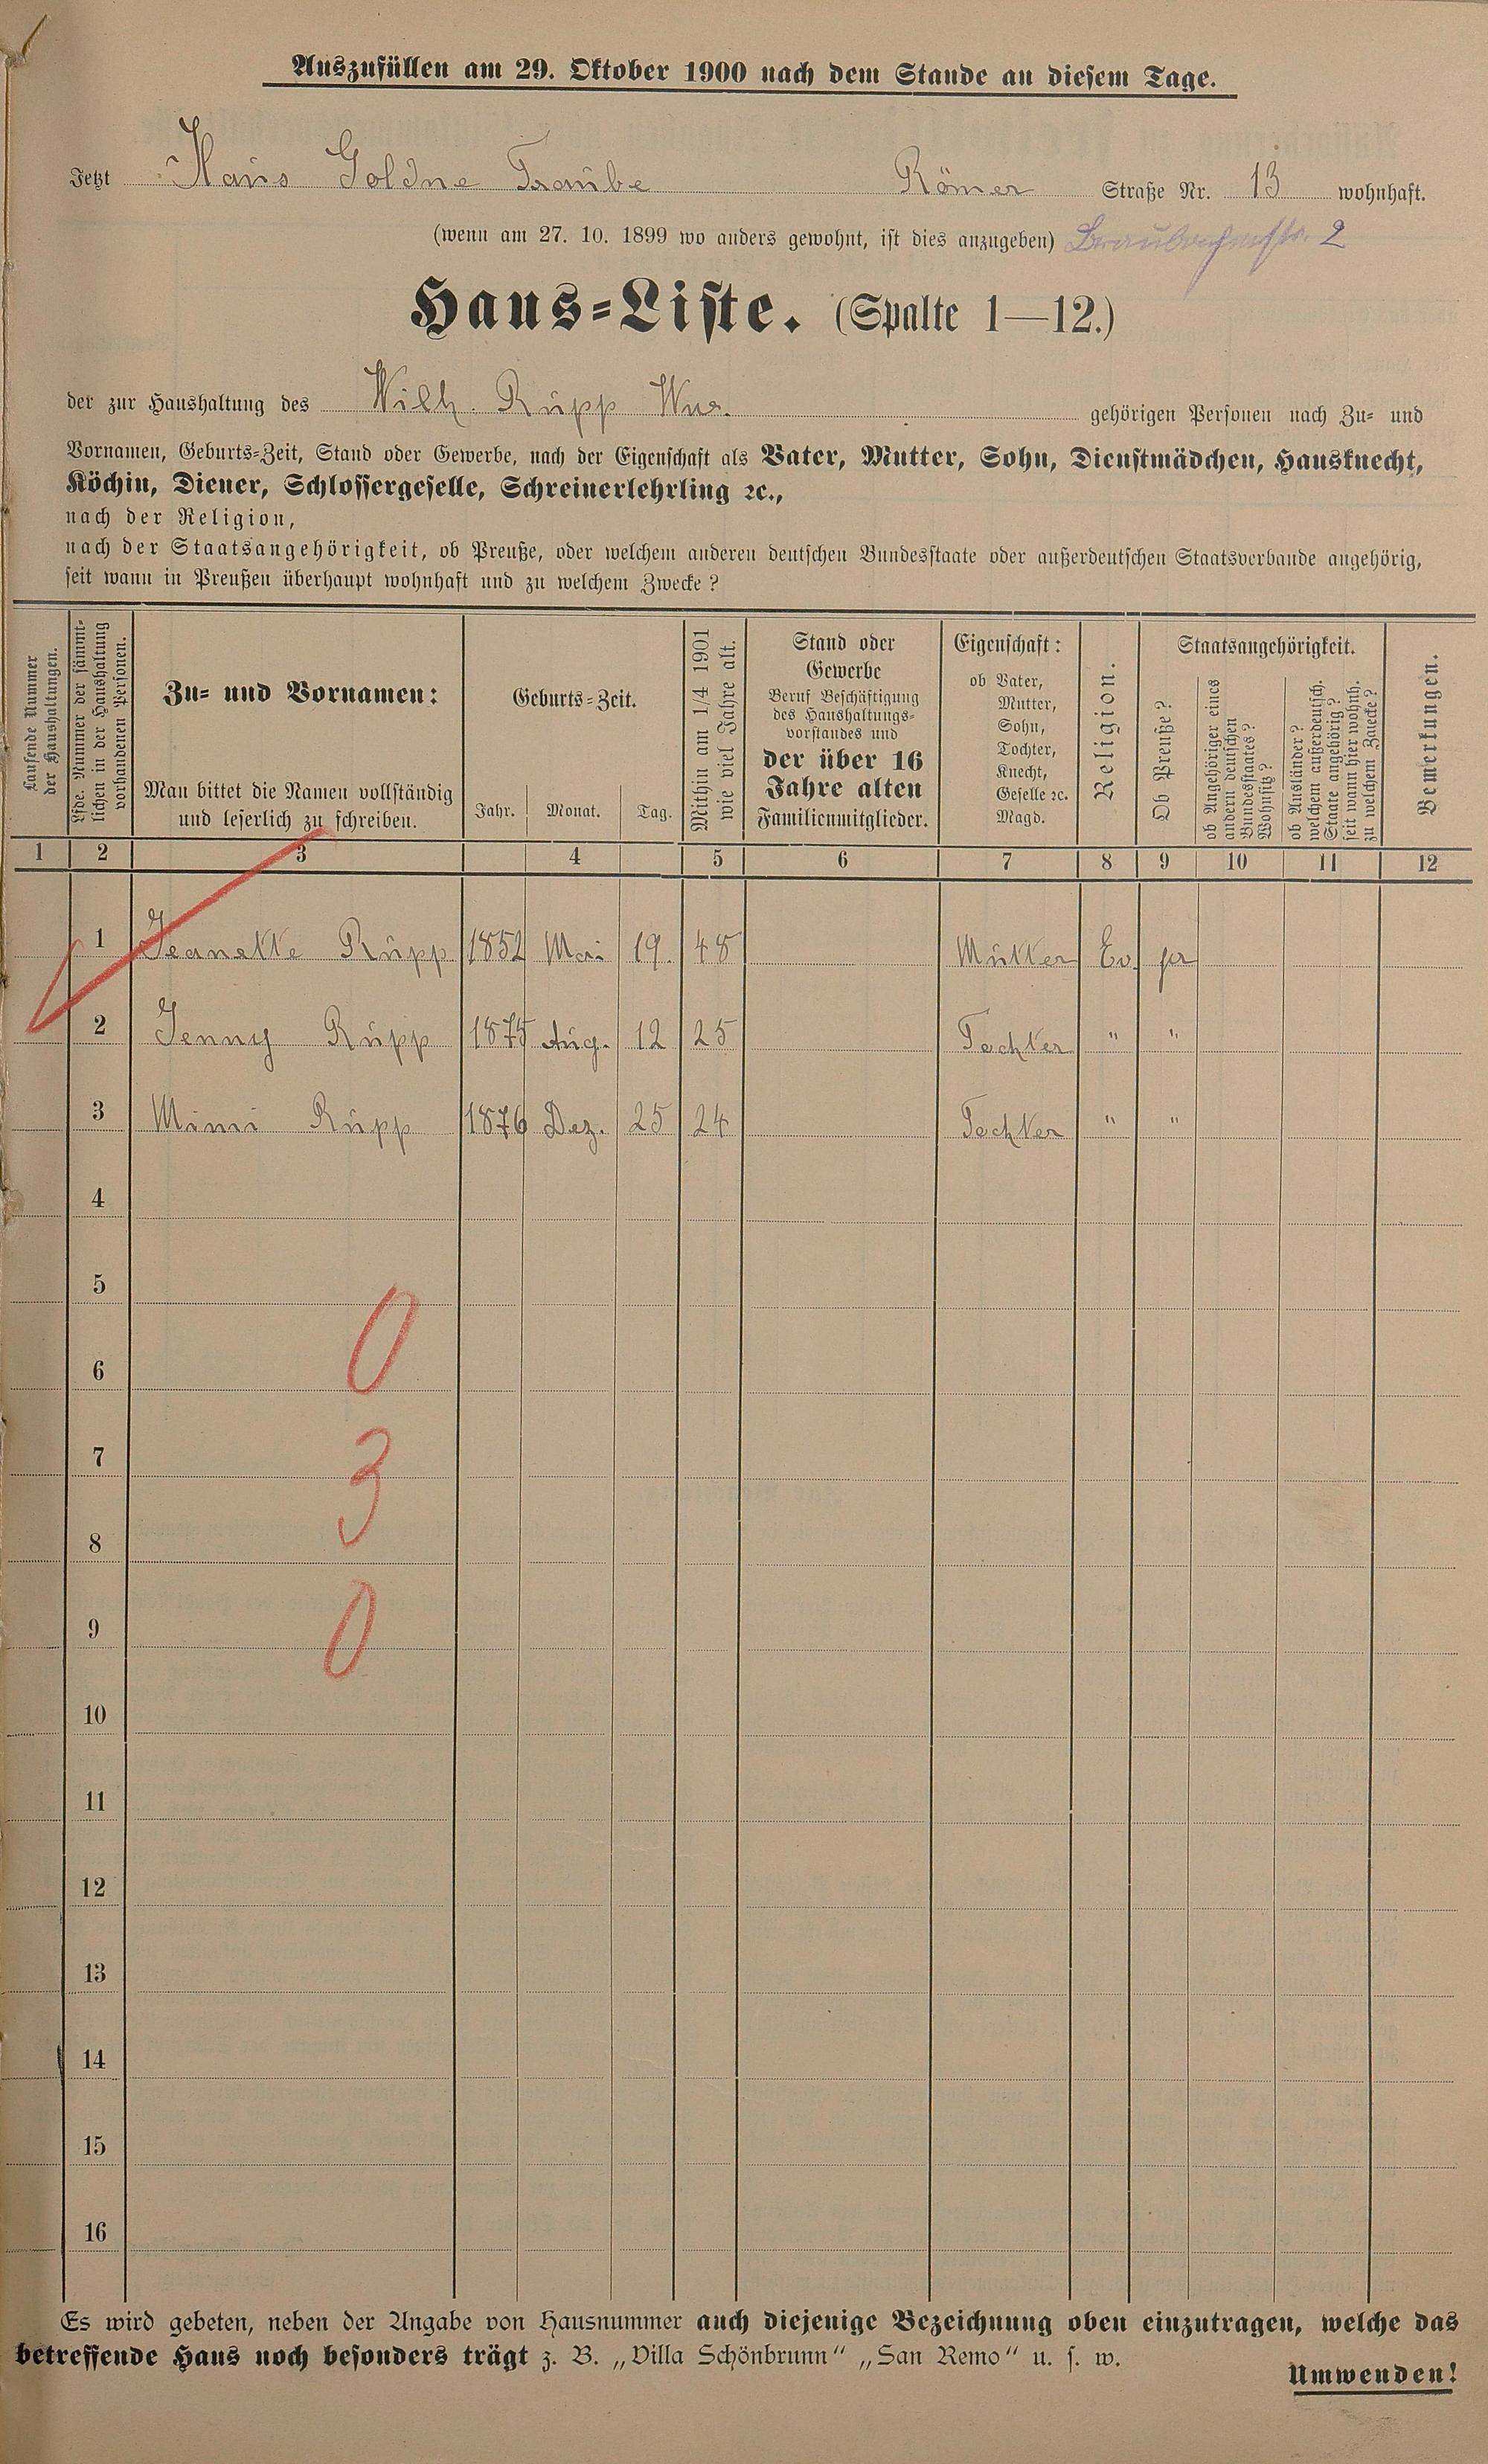 Auszufüllen am 29. Oktober 1900 nach dem Stande an diesem Tage.
Jetzt Haus Goldne Traube Römer Straße Nr. 13 wohnhaft.
(wenn am 27. 10. 1899 wo anders gewohnt, ist dies anzugeben) 2
Haus-Liste. (Spalte 1—12.)
der zur Haushaltung des Wilh. Rupp Wwe. gehörigen Personen nach Zu- und
Vornamen, Geburts-Zeit, Stand oder Gewerbe, nach der Eigenschaft als Vater, Mutter, Sohn, Dienstmädchen, Hausknecht,
Köchin, Diener, Schlossergeselle, Schreinerlehrling ꝛc.,
nach der Religion,
nach der Staatsangehörigkeit, ob Preuße, oder welchem anderen deutschen Bundesstaate oder außerdeutschen Staatsverbande angehörig,
seit wann in Preußen überhaupt wohnhaft und zu welchem Zwecke?
Laufende Nummer
der Haushaltungen.
Lfde. Nummer der sämmt-
lichen in der Haushaltung
vorhandenen Personen.
Zu- und Vornamen:
Man bittet die Namen vollständig
und leserlich zu schreiben.
Geburts-Zeit.
Jahr. Monat. Tag.
Mithin am 1/4 1901
wie viel Jahre alt.
Stand oder
Gewerbe
Beruf Beschäftigung
des Haushaltungs-
vorstandes und
der über 16
Jahre alten
Familienmitglieder.
Eigenschaft:
ob Vater,
Mutter,
Sohn,
Tochter,
Knecht,
Geselle ꝛc.
Magd.
Religion.
Staatsangehörigkeit.
Ob Preuße?
ob Angehöriger eines
andern deutschen
Bundesstaates?
Wohnsitz?
ob Ausländer?
welchem außerdeutsch.
Staate angehörig?
seit wann hier wohnh.
zu welchem Zwecke?
Bemerkungen.
1 2 3 4 5 6 7 8 9 10 11 12
1 Jeanette Rupp 1852 Mai 19. 48 Mutter Ev. pr
2 Jenny Rupp 1875 Aug. 12 25 Tochter " "
3 Mimi Rupp 1876 Dez. 25 24 Tochter " "
4
5
0
6
7
3
8
9
0
10
11
12
13
14
15
16
Es wird gebeten, neben der Angabe von Hausnummer auch diejenige Bezeichnung oben einzutragen, welche das
betreffende Haus noch besonders trägt z. B. „Villa Schönbrunn" „San Remo" u. s. w.
Umwenden!